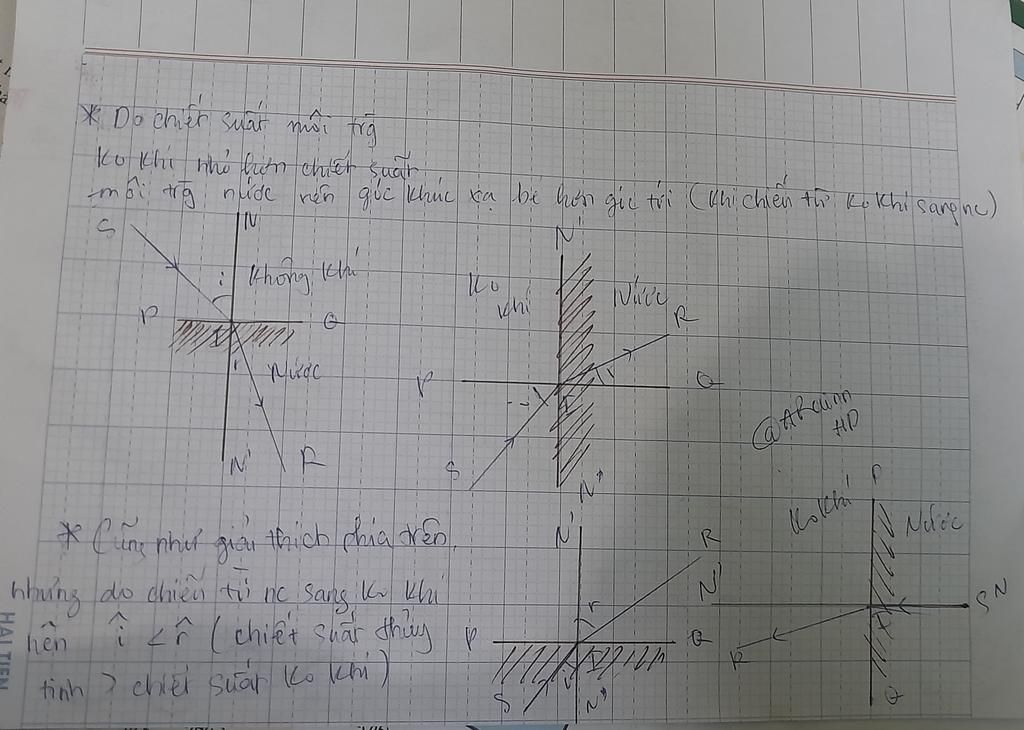 * Do chiết suất môi trg
Ko khí nhỏ hơn chiết suất
môi trg nước nên góc khúc xạ bé hơn góc tới (Khi chiếu từ ko khí sang nc)
S
N
i
Không khí
P
Q
r
Nước
N'
R
N'
Ko
khí
Nước
R
r
P
Q
S
N'
HD
P
Ko khí
Nước
N'
S
N
R
Q
* Cũng như giải thích phía trên
nhưng do chiếu từ nc sang ko khí
nên î < r̂ (chiết suất thủy
tinh > chiết suất ko khí)
N'
R
r
P
Q
S
i
N'
HẢI TIẾN